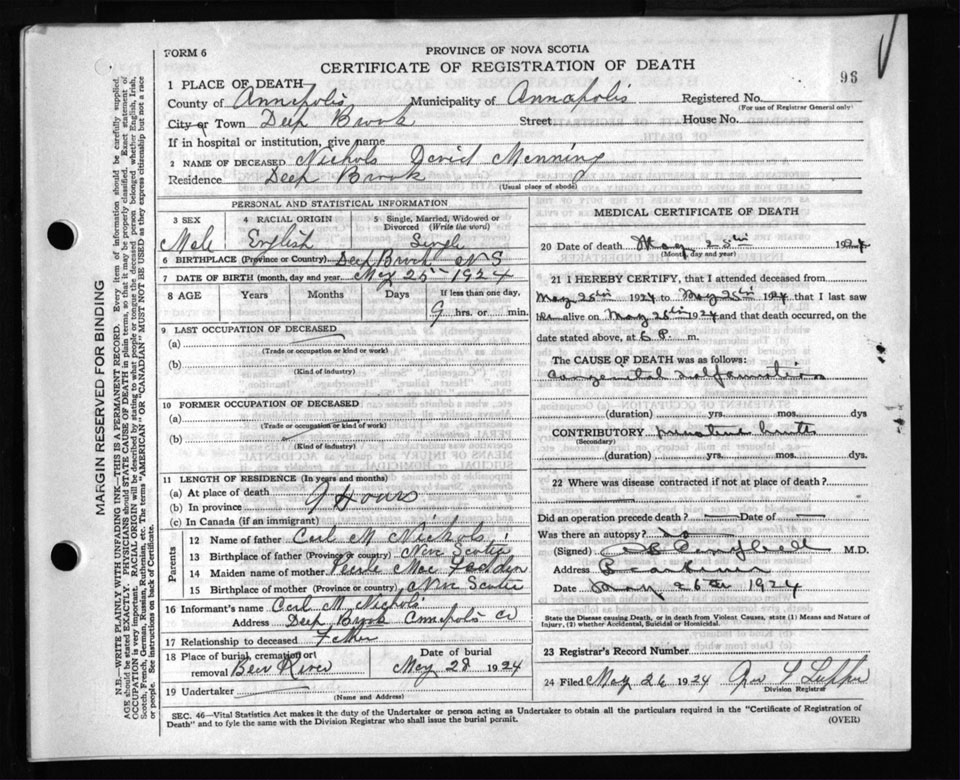 FORM 6
PROVINCE OF NOVA SCOTIA
CERTIFICATE OF REGISTRATION OF DEATH
93
1 PLACE OF DEATH
County of Annapolis Municipality of Annapolis Registered No.
(For use of Registrar General only)
City or Town Deep Brook Street House No.
If in hospital or institution, give name
2 NAME OF DECEASED Nichols David Menning
Residence Deep Brook
(Usual place of abode)
PERSONAL AND STATISTICAL INFORMATION
3 SEX 4 RACIAL ORIGIN 5 Single, Married, Widowed or Divorced (Write the word)
Male English Single
6 BIRTHPLACE (Province or Country) Deep Brook N S
7 DATE OF BIRTH (month, day and year) May 25th 1924
8 AGE Years Months Days If less than one day,
9 hrs. or min.
9 LAST OCCUPATION OF DECEASED
(a)
(Trade or occupation or kind or work)
(b)
(Kind of industry)
10 FORMER OCCUPATION OF DECEASED
(a)
(Trade or occupation or kind of work)
(b)
(Kind of industry)
11 LENGTH OF RESIDENCE (In years and months)
(a) At place of death 9 Hours
(b) In province
(c) In Canada (if an immigrant)
Parents
12 Name of father Carl M Nichols
13 Birthplace of father (Province or country) Nova Scotia
14 Maiden name of mother Mac Fadden
15 Birthplace of mother (Province or country) Nova Scotia
16 Informant's name Carl M Nichols
Address Deep Brook Annapolis Co
17 Relationship to deceased Father
18 Place of burial, cremation or removal Bear River Date of burial May 28 1924
19 Undertaker
(Name and Address)
MEDICAL CERTIFICATE OF DEATH
20 Date of death May 25th 1924
(Month, day and year)
21 I HEREBY CERTIFY, that I attended deceased from
May 25th 1924 to May 25th 1924 that I last saw
alive on May 25th 1924 and that death occurred, on the
date stated above, at 6 P. m.
The CAUSE OF DEATH was as follows:
Congenital malformation
(duration) yrs. mos. dys
CONTRIBUTORY
(Secondary)
(duration) yrs. mos. dys.
22 Where was disease contracted if not at place of death?
Did an operation precede death? Date of
Was there an autopsy? no
(Signed) Campbell M.D.
Address
Date May 26th 1924
State the Disease causing Death, or in death from Violent Causes, state (1) Means and Nature of Injury, (2) whether Accidental, Suicidal or Homicidal.
23 Registrar's Record Number
24 Filed May 26 1924
Division Registrar
SEC. 46—Vital Statistics Act makes it the duty of the Undertaker or person acting as Undertaker to obtain all the particulars required in the "Certificate of Registration of
Death" and to fyle the same with the Division Registrar who shall issue the burial permit. (OVER)
MARGIN RESERVED FOR BINDING
N.B.—WRITE PLAINLY WITH UNFADING INK—THIS IS A PERMANENT RECORD. Every item of information should be carefully supplied.
AGE should be stated EXACTLY. PHYSICIANS should STATE CAUSE OF DEATH in plain terms, so that it may be properly classified. Exact statement of
OCCUPATION is very important. RACIAL ORIGIN will be described by stating to what people or tongue the deceased person belonged whether English, Irish,
Scotch, French, German, Russian, Ruthenian, etc. The terms "AMERICAN" OR "CANADIAN" MUST NOT BE USED as they express citizenship but not a race
or people. See instructions on back of Certificate.